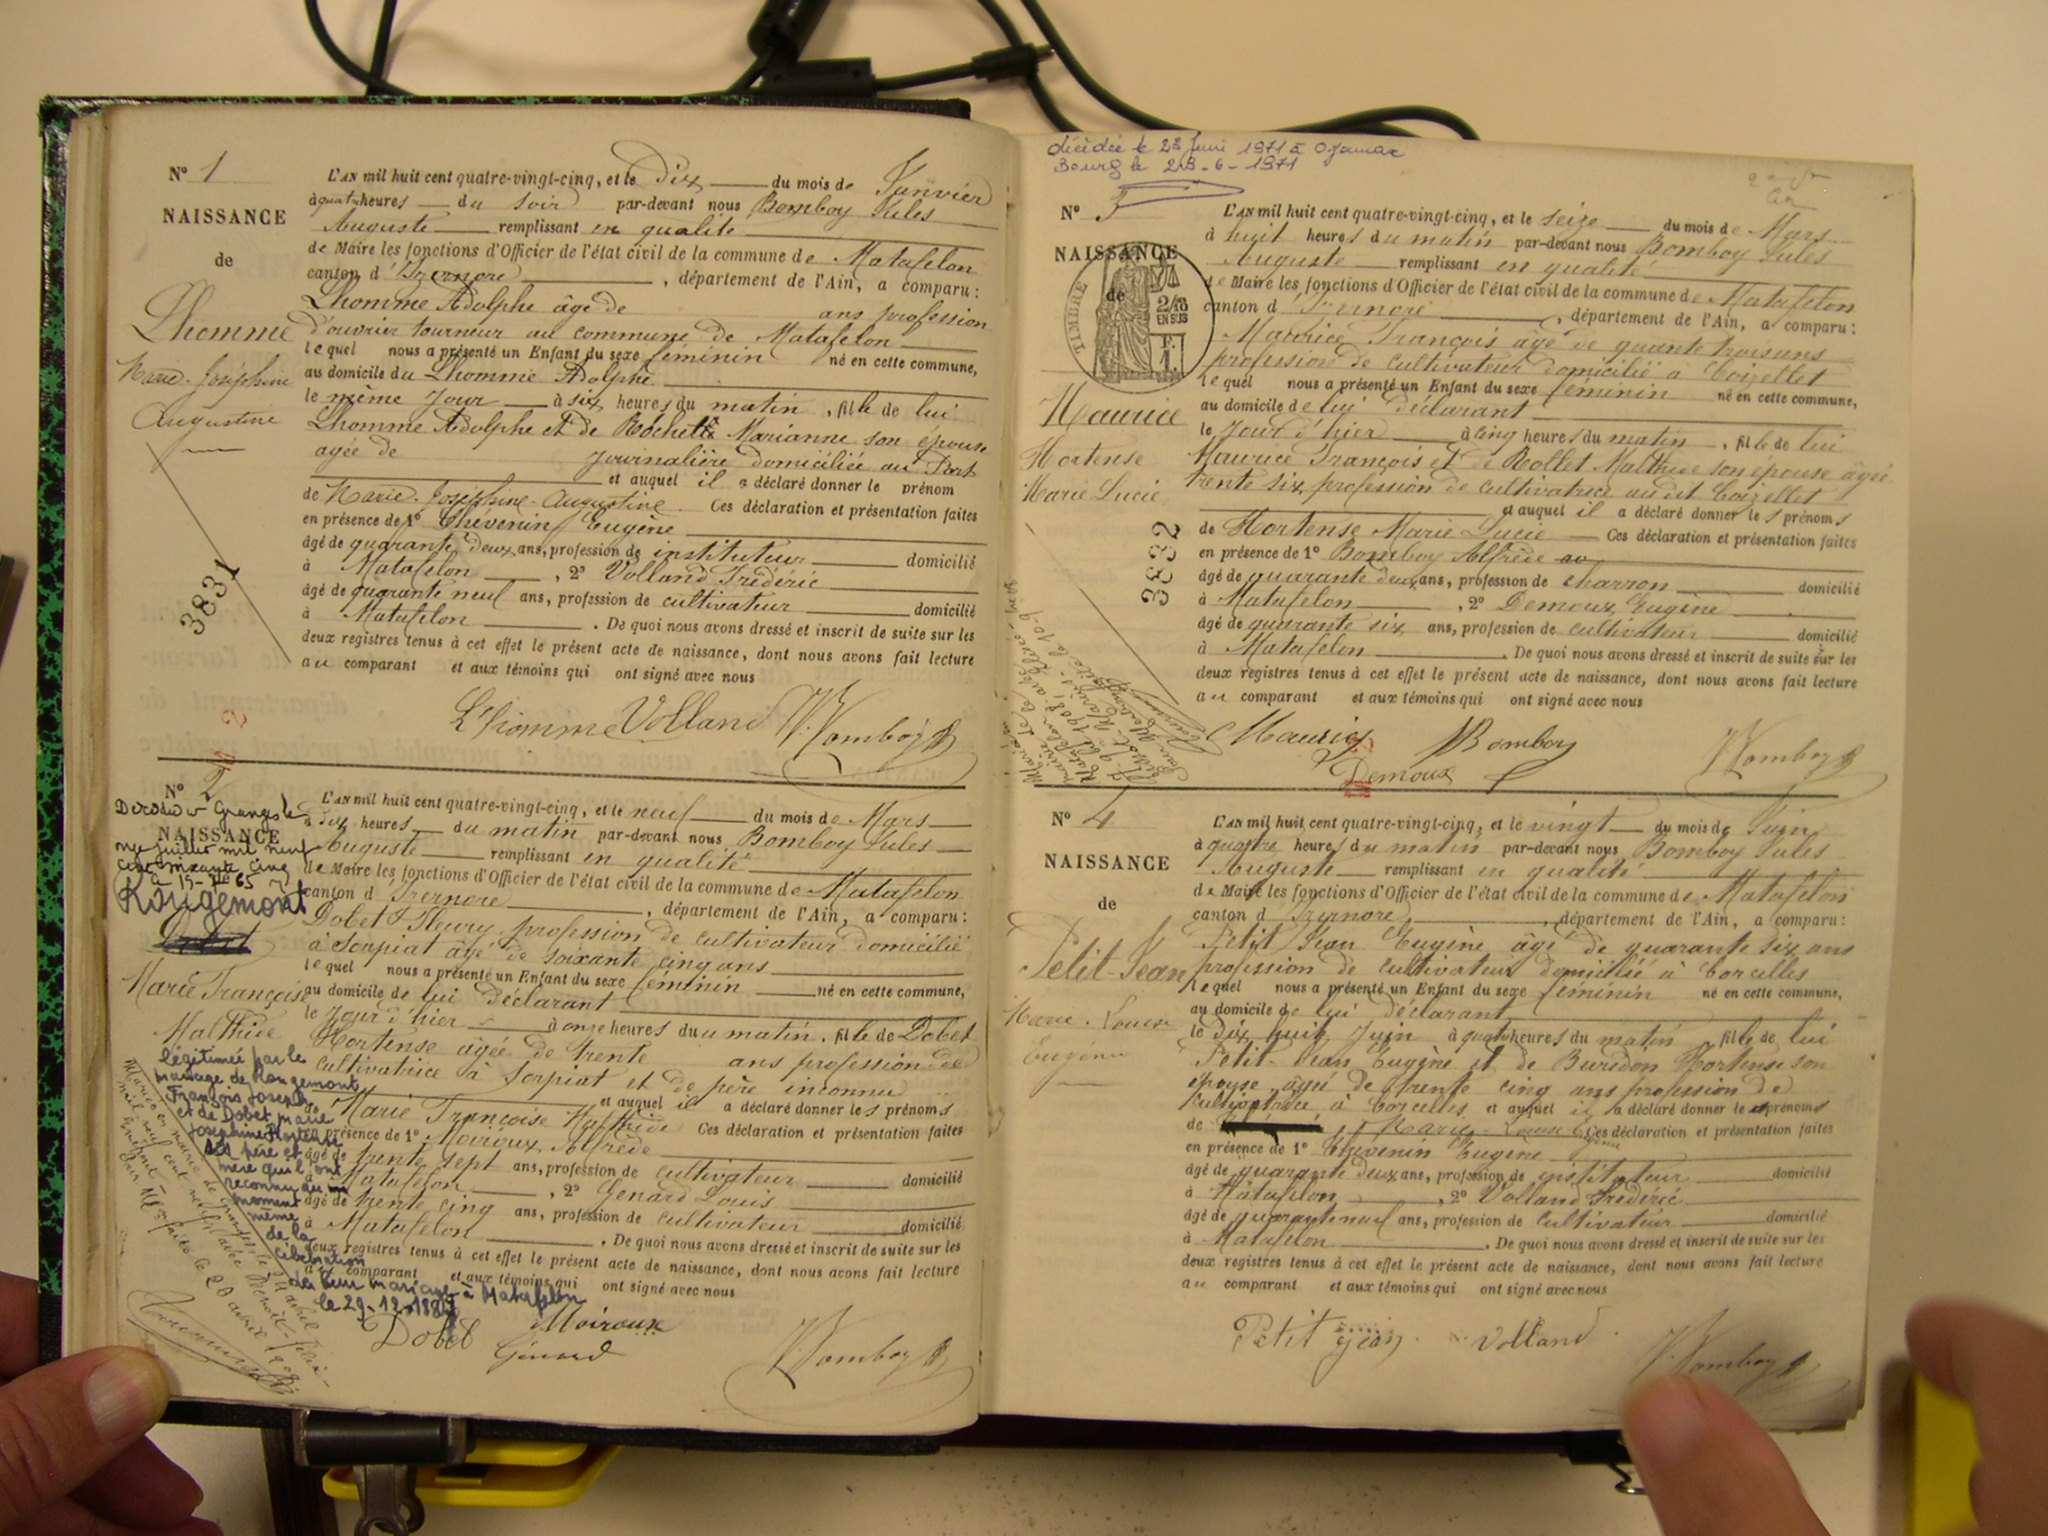 N° 1
NAISSANCE
de
Lhomme
Marie-Joséphine
Augustine
3831
L'AN mil huit cent quatre-vingt-cinq, et le Dix du mois de Janvier
à quatre heures du soir par-devant nous Bomboy Jules
Auguste remplissant en qualité
de Maire les fonctions d'Officier de l'état civil de la commune de Matafelon
canton d'Izernore, département de l'Ain, a comparu :
Lhomme Adolphe âgé de ans profession
d'ouvrier tourneur au commune de Matafelon
lequel nous a présenté un Enfant du sexe féminin né en cette commune,
au domicile du Lhomme Adolphe
le même jour à six heures du matin, fille de lui
Lhomme Adolphe et de Rochette Marianne son épouse
agée de journalière domiciliée au Port
et auquel il a déclaré donner le prénom
de Marie-Joséphine-Augustine. Ces déclaration et présentation faites
en présence de 1° Thévenin Eugène
âgé de quarante deux ans, profession de instituteur domicilié
à Matafelon, 2° Volland Frédéric
âgé de quarante neuf ans, profession de cultivateur domicilié
à Matafelon. De quoi nous avons dressé et inscrit de suite sur les
deux registres tenus à cet effet le présent acte de naissance, dont nous avons fait lecture
au comparant et aux témoins qui ont signé avec nous
Lhomme Volland Bomboy
N° 2
NAISSANCE
Décédée à Granges le
onze juillet mil neuf
cent soixante cinq
Le 15-7-65
Rougemont
Dobet
Marie Françoise
Malthide
légitimée par le
mariage de Rougemont
François Joseph
et de Dobet Marie
Joséphine Hortense
ses père et
mère qui l'ont
reconnu au
moment
même
de la
célébration
de leur mariage à Matafelon
le 29-12-1887
L'AN mil huit cent quatre-vingt-cinq, et le neuf du mois de Mars
à dix heures du matin par-devant nous Bomboy Jules
Auguste remplissant en qualité
de Maire les fonctions d'Officier de l'état civil de la commune de Matafelon
canton d'Izernore, département de l'Ain, a comparu :
Dobet Fleury profession de cultivateur domicilié
à Sorpiat âgé de soixante cinq ans
lequel nous a présenté un Enfant du sexe féminin né en cette commune,
au domicile de lui déclarant
le jour d'hier à onze heures du matin, fille de Dobet
Hortense âgée de trente ans profession de
cultivatrice à Sorpiat et de père inconnu
et auquel il a déclaré donner les prénoms
de Marie Françoise Malthide Ces déclaration et présentation faites
en présence de 1° Moiroux Alfrède
âgé de trente sept ans, profession de cultivateur domicilié
à Matafelon, 2° Genard Louis
âgé de trente cinq ans, profession de cultivateur domicilié
à Matafelon. De quoi nous avons dressé et inscrit de suite sur les
deux registres tenus à cet effet le présent acte de naissance, dont nous avons fait lecture
au comparant et aux témoins qui ont signé avec nous
Dobet Moiroux Genard Bomboy
décédée le 22 Juin 1971 à Oyonnax
Bourg le 28-6-1971
N° 3
NAISSANCE
de
TIMBRE
Maurice
Hortense
Marie Lucie
3832
L'AN mil huit cent quatre-vingt-cinq, et le seize du mois de Mars
à huit heures du matin par-devant nous Bomboy Jules
Auguste remplissant en qualité
de Maire les fonctions d'Officier de l'état civil de la commune de Matafelon
canton d'Izernore, département de l'Ain, a comparu :
Maurice François âgé de quante trois ans
profession de cultivateur domicilié à Coizellet
lequel nous a présenté un Enfant du sexe féminin né en cette commune,
au domicile de lui déclarant
le jour d'hier à cinq heures du matin, fille de lui
Maurice François et de Rollet Malthide son épouse âgée
trente six profession de cultivatrice au dit Coizellet
et auquel il a déclaré donner les prénoms
de Hortense Marie Lucie Ces déclaration et présentation faites
en présence de 1° Bomboy Alfrède
âgé de quarante deux ans, profession de charron domicilié
à Matafelon, 2° Demoux Eugène
âgé de quarante six ans, profession de cultivateur domicilié
à Matafelon. De quoi nous avons dressé et inscrit de suite sur les
deux registres tenus à cet effet le présent acte de naissance, dont nous avons fait lecture
au comparant et aux témoins qui ont signé avec nous
Maurice Bomboy Demoux Bomboy
N° 4
NAISSANCE
de
Petit-Jean
Marie-Louise
Eugénie
L'AN mil huit cent quatre-vingt-cinq, et le vingt du mois de Juin
à quatre heures du matin par-devant nous Bomboy Jules
Auguste remplissant en qualité
de Maire les fonctions d'Officier de l'état civil de la commune de Matafelon
canton d'Izernore, département de l'Ain, a comparu :
Petit Jean Eugène âgé de quarante six ans
profession de cultivateur domicilié à Corcelles
lequel nous a présenté un Enfant du sexe féminin né en cette commune,
au domicile de lui déclarant
le dix huit Juin à quatre heures du matin fille de lui
Petit-Jean Eugène et de Buridon Hortense son
épouse âgée de trente cinq ans profession de
cultivatrice à Corcelles et auquel il a déclaré donner les prénoms
de Marie-Louise Eugénie Ces déclaration et présentation faites
en présence de 1° Thévenin Eugène
âgé de quarante deux ans, profession de instituteur domicilié
à Matafelon, 2° Volland Frédéric
âgé de quarante neuf ans, profession de cultivateur domicilié
à Matafelon. De quoi nous avons dressé et inscrit de suite sur les
deux registres tenus à cet effet le présent acte de naissance, dont nous avons fait lecture
au comparant et aux témoins qui ont signé avec nous
Petit Jean Volland Bomboy